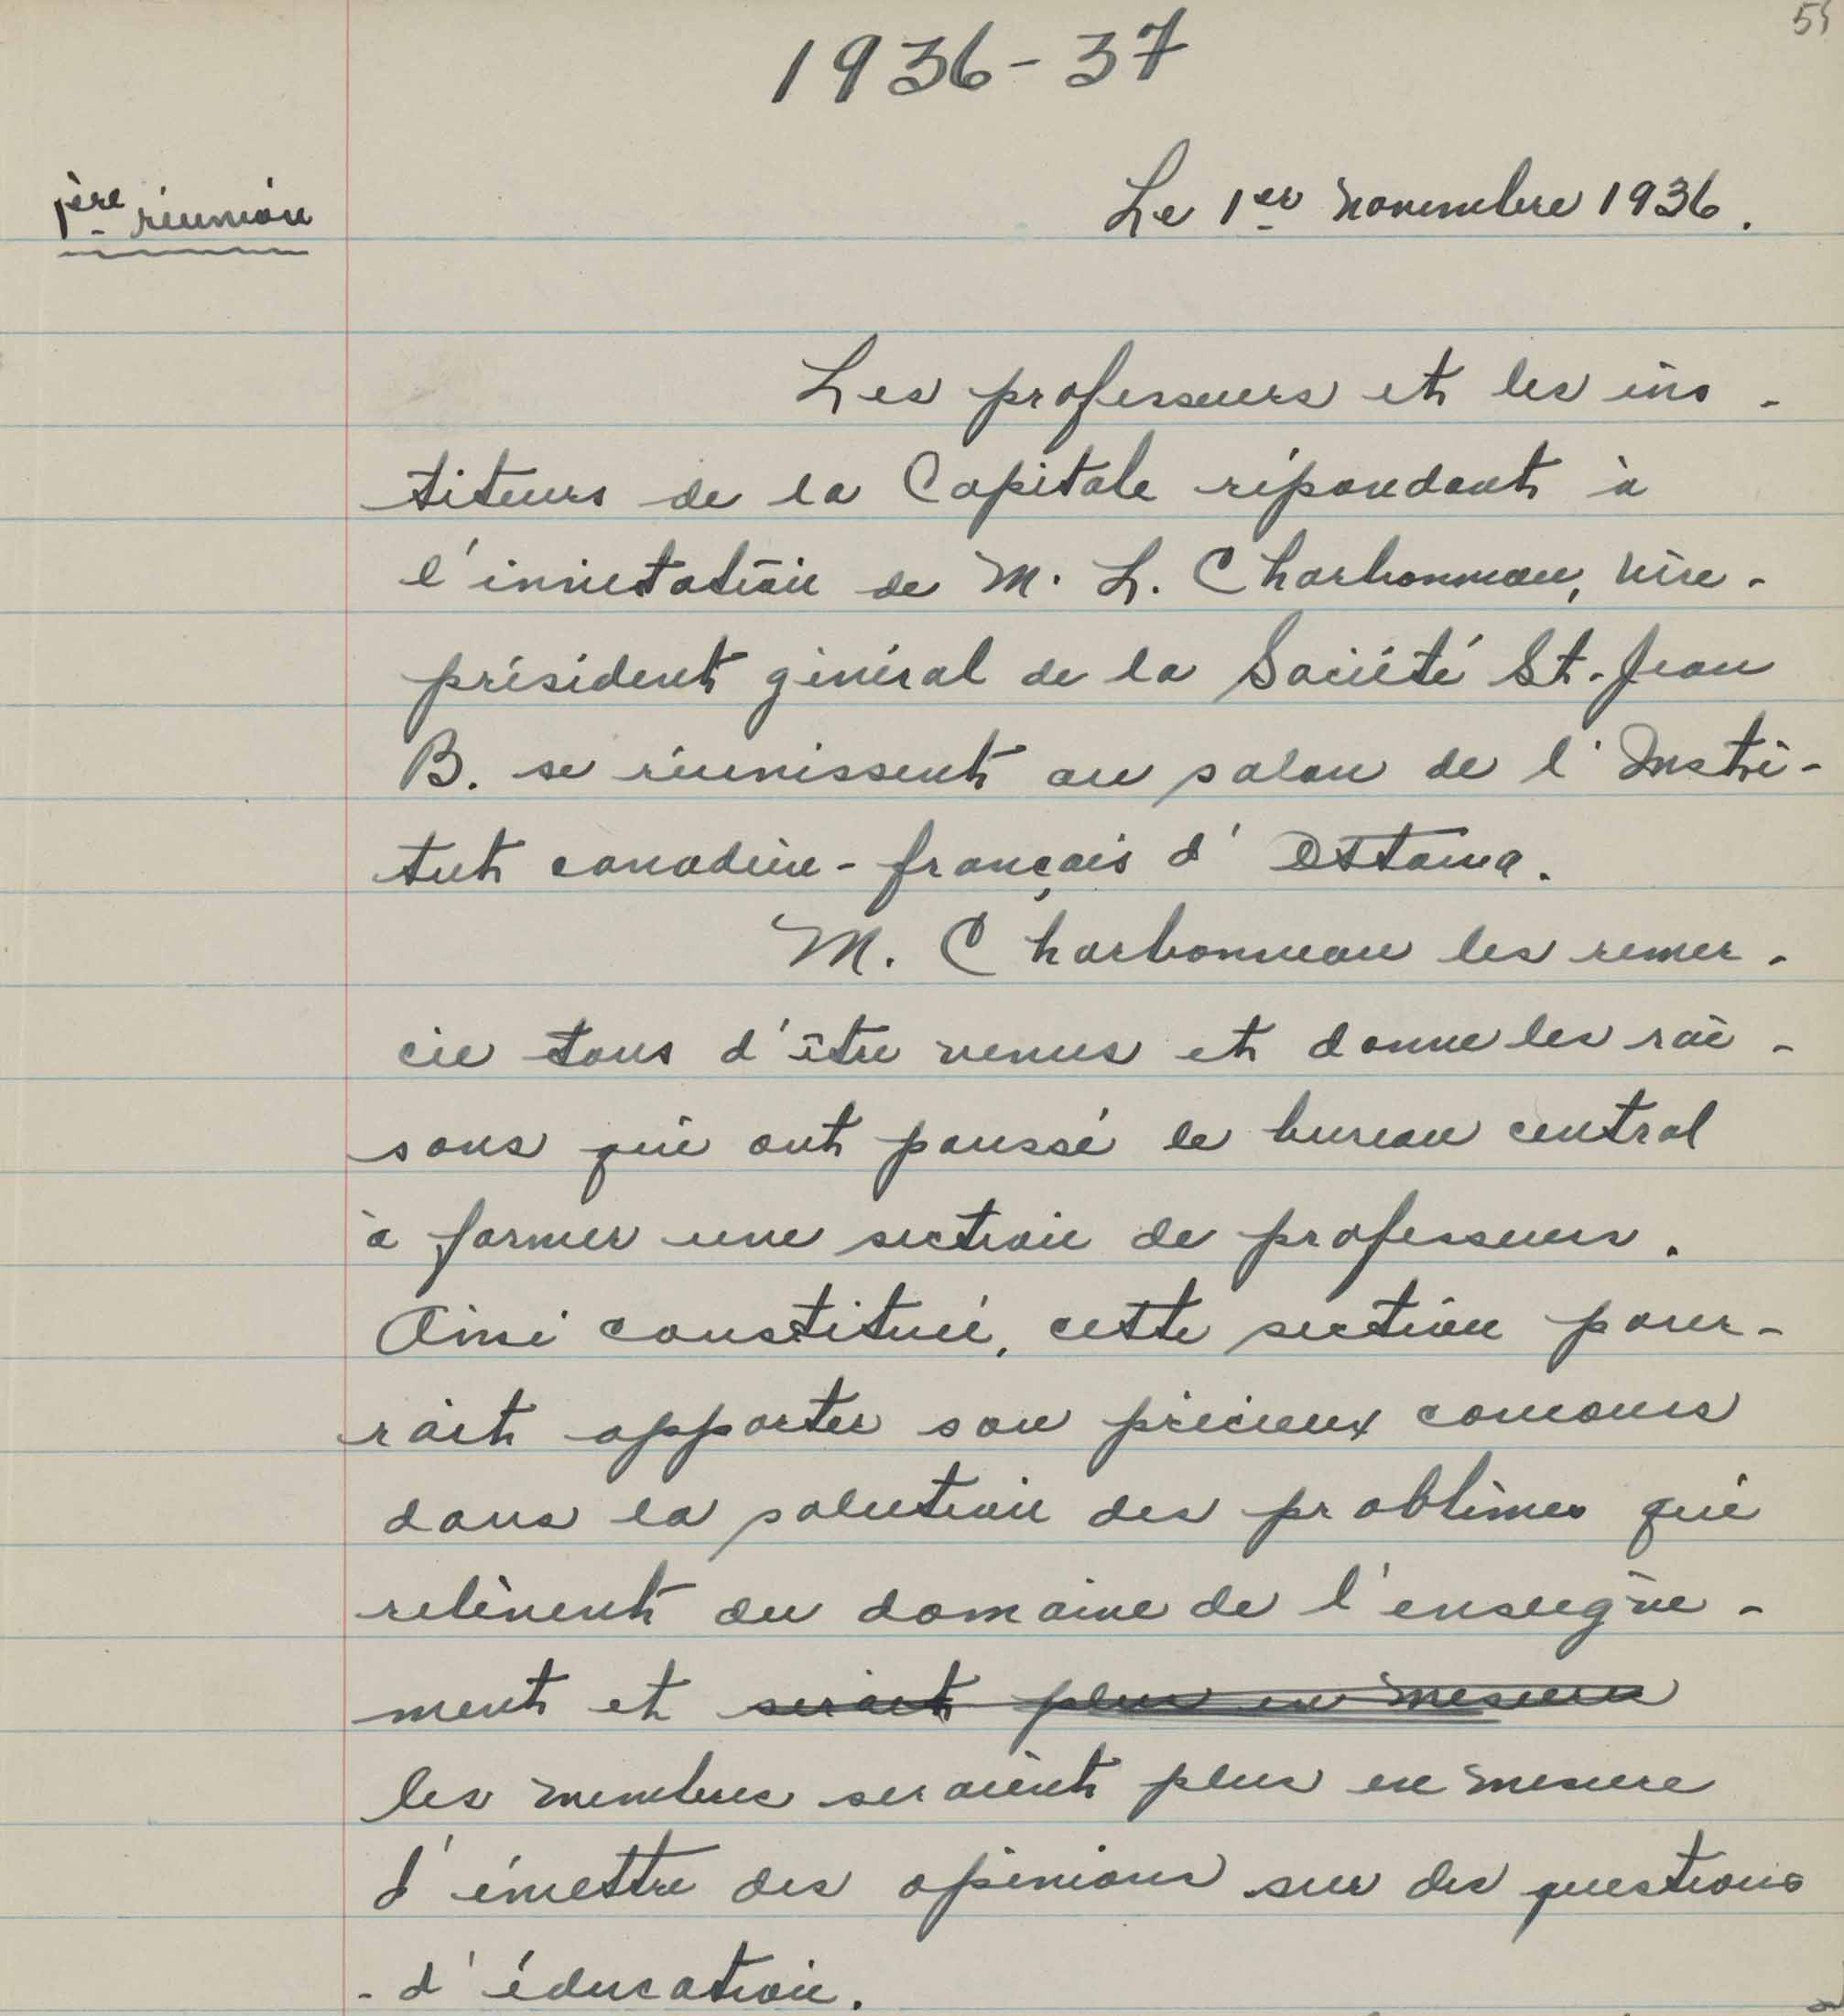 1936-37
1ère réunion
Le 1er novembre 1936.
Les professeurs et les ins-
tituteurs de la Capitale répondant à
l'invitation de M. L. Charbonneau, vice-
président général de la Société St. Jean
B. se réunissent au salon de l'Insti-
tut canadien-français d'Ottawa.
M. Charbonneau les remer-
cie tous d'être venus et donne les rai-
sons qui ont poussé le bureau central
à former une section de professeurs.
Ainsi constituée, cette section pour-
rait apporter son précieux concours
dans la solution des problèmes qui
relèvent du domaine de l'enseigne-
ment et serait plus en mesure
les membres seraient plus en mesure
d'émettre des opinions sur des questions
d'éducation.